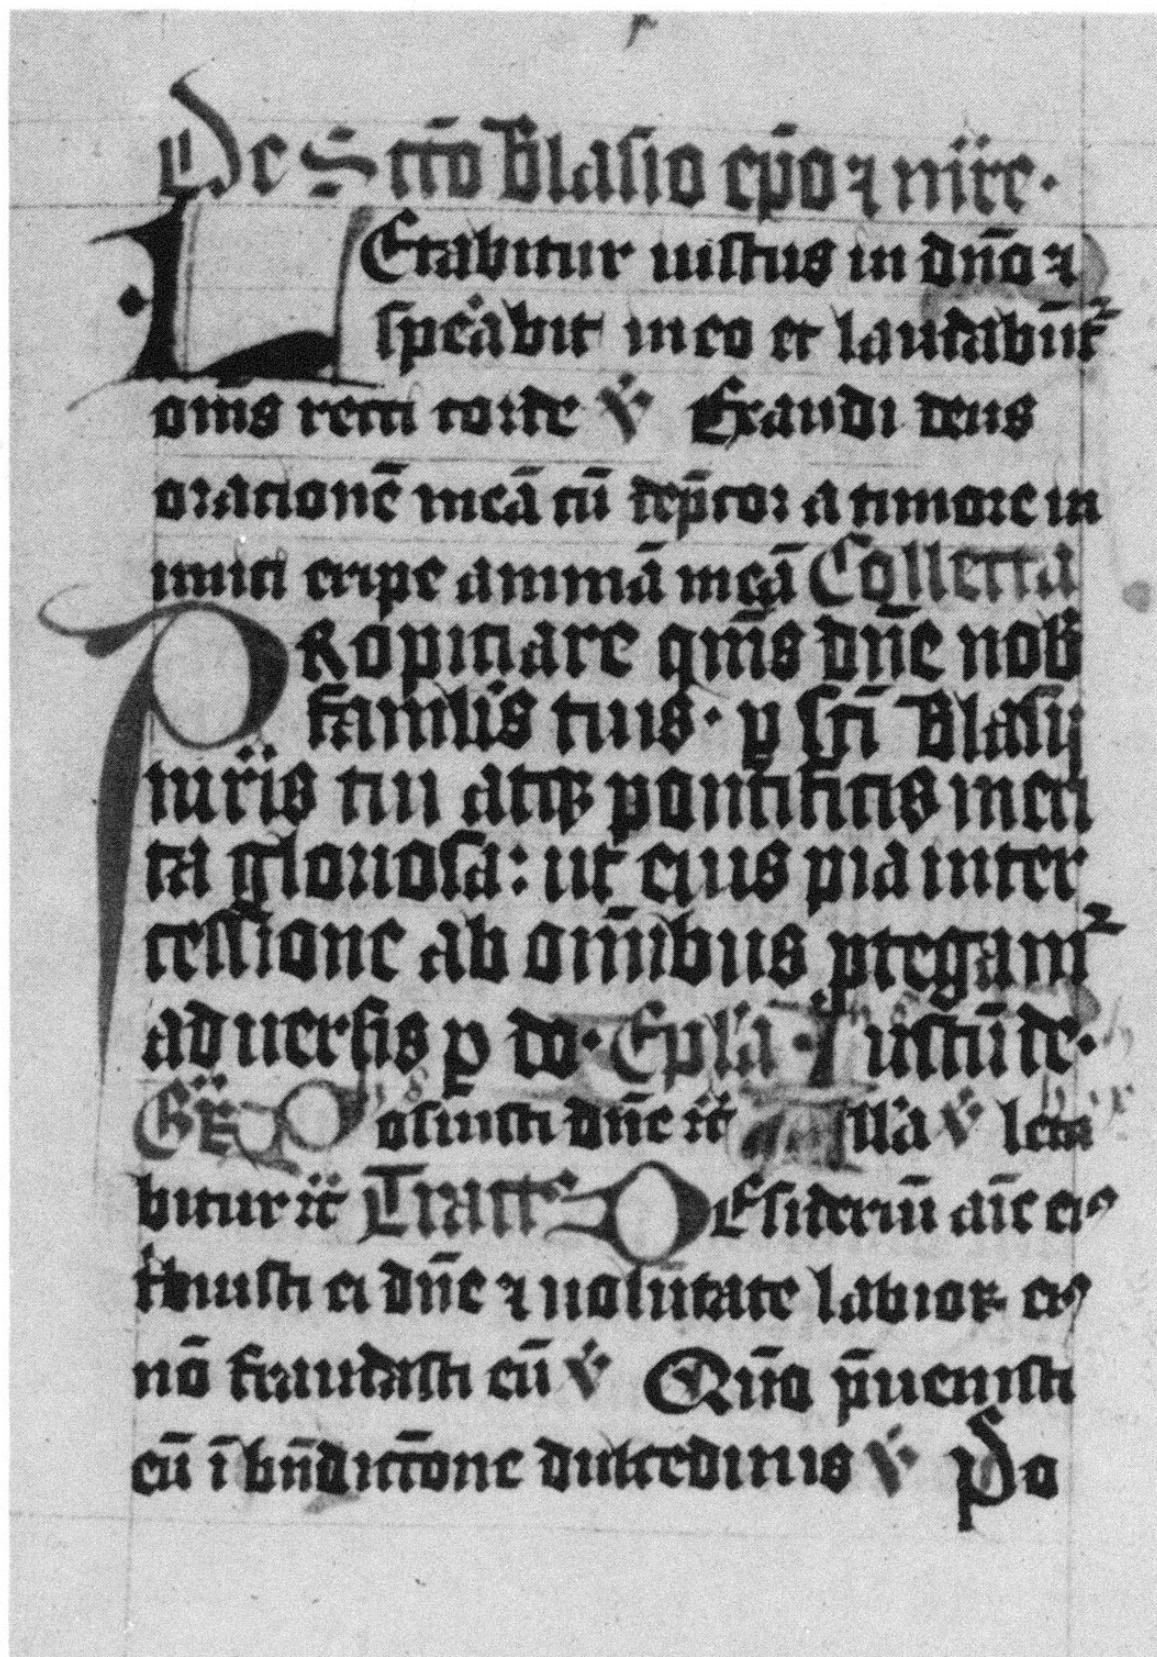 De Scto Blasio epo ⁊ mr̄e·
LEtabitur iustus in dn̄o ⁊
speͣabit in eo et laudabūt²
om̄s recti corde v̇ Exaudi deus
oracionē meā cū dep̄cor a timore in
imici eripe animā meā Collecta
PRopiciare qm̄s dn̄e nob̄
famulis tuis· ꝑ sc̄i Blasij
mr̄is tui atqꝫ pontificis meri
ta gloriosa: ut eius pia inter
cessione ab om̄ibus ꝓtegam²
aduersis ꝑ do· Ep̄la Iustū de·
Gr̄ Posuisti dn̄e rc̄ Alla v̇ leta
bitur rc̄ Tract² DEsideriū aīe eiꝰ
tribuisti ei dn̄e ⁊ uolūtate labioꝝ eiꝰ
nō fraudasti eū v̇ Qn̄o p̄uenisti
eū ī bn̄dictōne dulcedinis v̇ Po